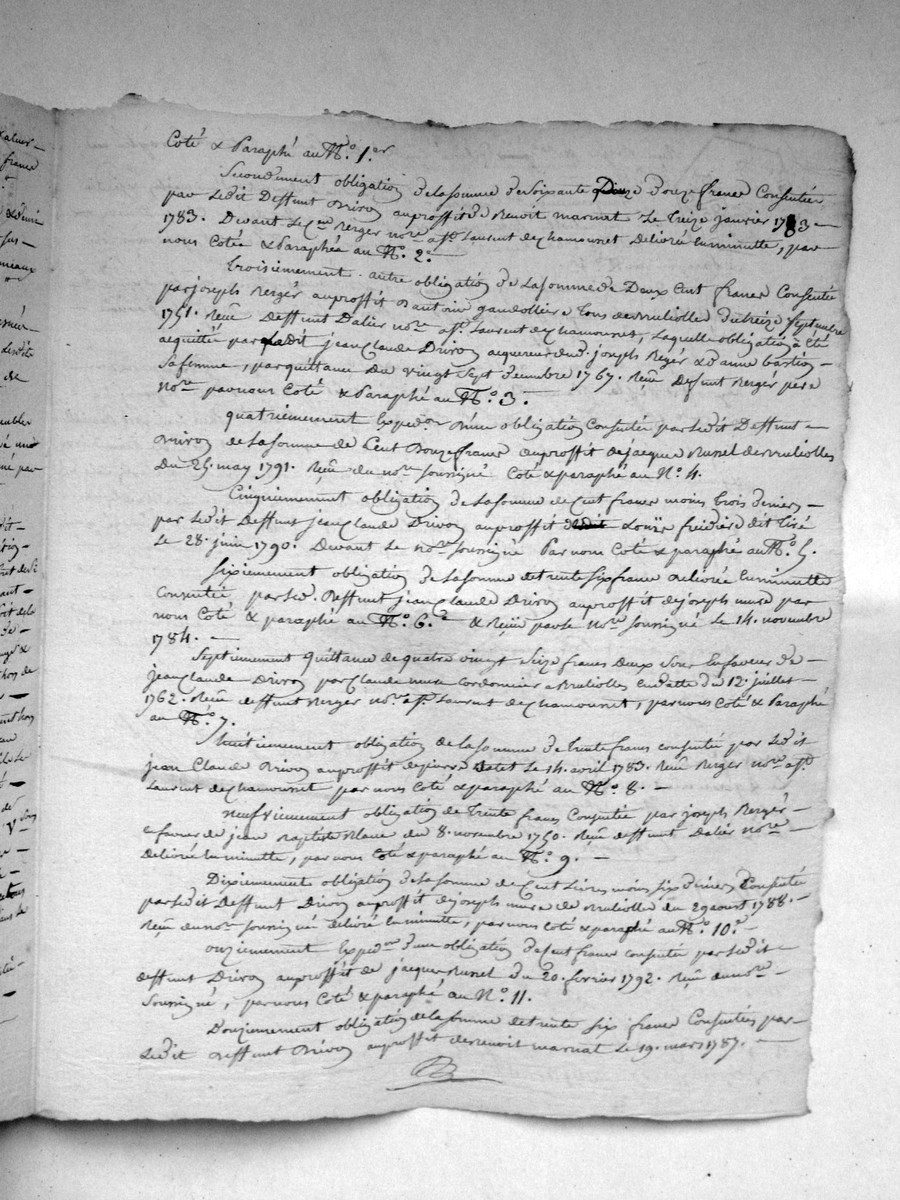 Coté & Paraphé au N.o 1.er
Secondement obligation de la somme de soixante douze francs Consentie
par ledit Deffunt Drivon au proffit de Benoit marnat le treize janvier 1783
1783. Devant le Berger no.re a St. Laurent de Chamousset délivrée en minutte, par
nous Cotée & Paraphée au N.o 2.
troisiemement autre obligation de la somme de Deux Cent francs Consentie
par joseph Berger au proffit d'antoine gandollier de Brulliolle du treize septembre
1751. Reçu Deffunt Dalier no.re a St. Laurent de Chamousset, laquelle obligation à été
acquittée par ledit jean Claude Drivon acquereur dud. joseph Berger & d'anne bastion
sa femme, par quittance du vingt sept décembre 1767. Reçu Defunt Berger pere
no.re par nous Coté & Paraphé au N.o 3.
quatriemement Exped.on d'une obligation Consentie par ledit Deffunt
Drivon de la somme de Cent Douze francs au proffit de jacque Bunel de Brulliolles
du 25. may 1791. Reçu du no.re soussigné Coté & paraphé au N.o 4.
Cinquiemement obligation de la somme de Cent francs moins trois deniers
par ledit Deffunt jean Claude Drivon au proffit de Louïs freidiere dit
le 28. juin 1790. Devant le no.re soussigné Par nous Coté & paraphé au N.o 5.
Sixiemement obligation de la somme de trente six francs délivrée en minutte
Consentie par led. Deffunt jean Claude Drivon au proffit de joseph mure par
nous Coté & paraphé au N.o 6. & Reçüe par le no.re soussigné le 14. novembre
1784.
Septiemement quittance de quatre vingt seize francs deux sous en faveur de
jean Claude Drivon par Claude mure Cordonnier a Brulliolles en datte du 12. juillet
1762. Reçu deffunt Berger no.re a St. Laurent de Chamousset, par nous Coté & Paraphé
au N.o 7.
huitiemement obligation de la somme de trente francs consentie par ledit
jean Claude Drivon au proffit de pierre le 14. avril 1783. Reçu Berger no.re a St.
Laurent de Chamousset par nous Coté & paraphé au N.o 8.
neufviemement obligation de trente francs Consentie par joseph Berger
en faveur de jean Baptiste Blanc du 8. novembre 1750. Reçu deffunt Dalier no.re
délivrée en minutte, par nous Coté & paraphé au N.o 9.
Dixiemement obligation de la somme de Cent Livres moins six deniers Consentie
par ledit Deffunt Drivon au proffit de joseph mure de Brulliolle du 29 aoust 1788.
Reçu du no.re soussigné délivré en minutte, par nous Coté & paraphé au N.o 10.
onziemement Exped.on d'une obligation de Cent francs consentie par ledit
deffunt Drivon au proffit de jacque Bunel du 20. fevrier 1792. Reçu du no.re
Soussigné, par nous Coté & paraphé au N.o 11.
Douziemement obligation de la somme de trente six francs Consentie par
ledit Deffunt Drivon au proffit de Benoit marnat le 19. mars 1787.